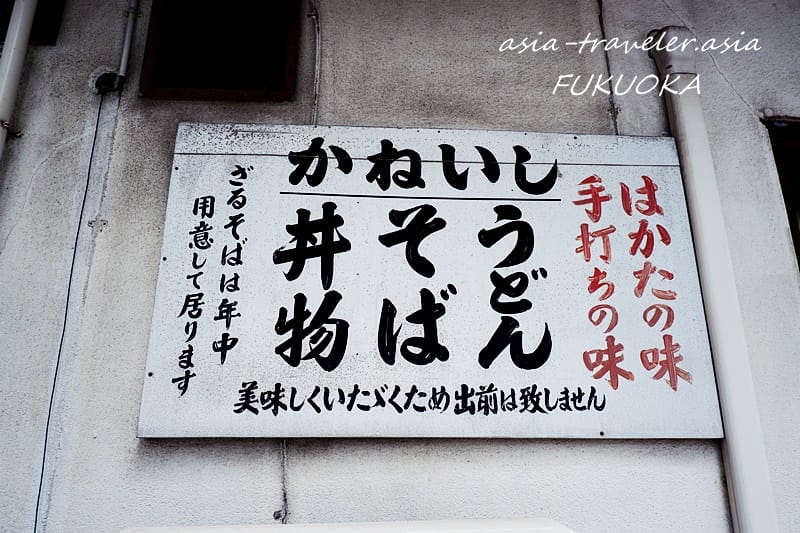 asia-traveler.asia
FUKUOKA
かねいし
はかたの味
手打ちの味
うどん
そば
丼物
ざるそばは年中
用意して居ります
美味しくいたゞくため出前は致しません